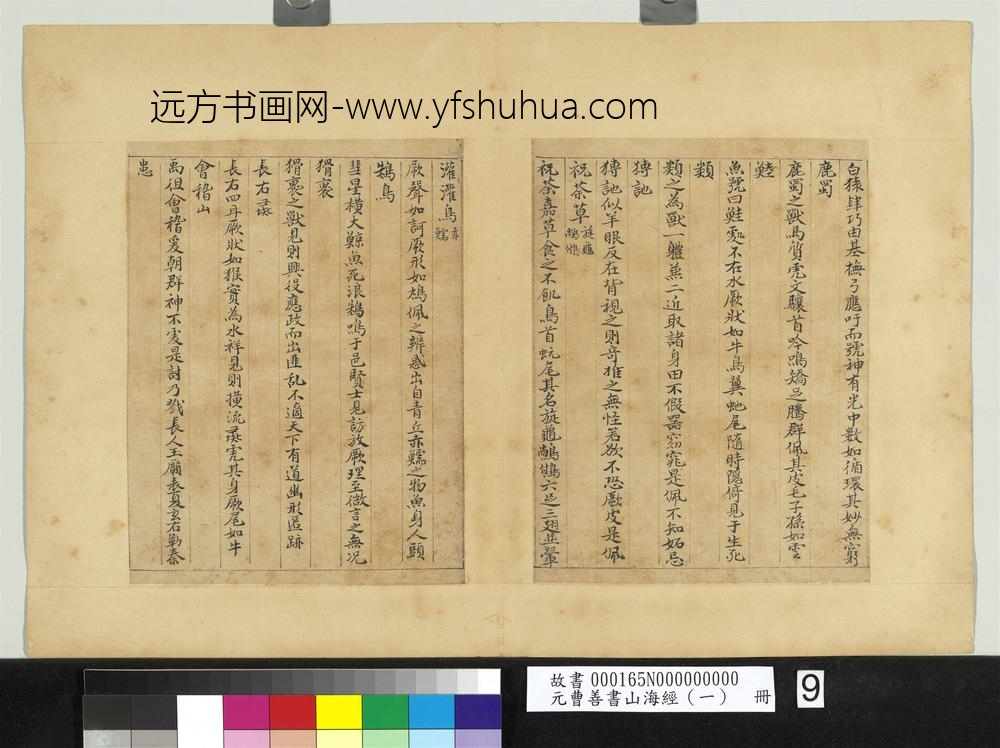 远方书画网-www.yfshuhua.com
白猿肆巧由基撫弓應吁而號神有先中數如循環其妙無窮
鹿蜀
鹿蜀之獸馬質虎文驤首吟鳴矯足騰群佩其皮毛子孫如雲
鯥
魚號曰鯥處不在水厥狀如牛鳥翼虵尾隨時隱倚見于生死
類
類之為獸一軆兼二近取諸身田不假器窈窕是佩不知妬忌
猼訑
猼訑似羊眼反在背視之則奇推之無怪若欲不恐厥皮是佩
祝荼草 旋龜 鵸鵂
祝荼嘉草食之不飢鳥首蚖尾其名旋龜鵸鵂六足三翅並翬
灌灌鳥 赤鱬
厥聲如訶厥形如鳩佩之辨惑出自青丘赤鱬之物魚身人頭
鵸鳥
彗星橫天鯨魚死浪鵸鳴于邑賢士見放厥理至微言之無况
猾褢
猾褢之獸見則興役應政而出匪乱不適天下有道幽形匿跡
長右 彘
長右四耳厥狀如猴實為水祥見則橫流彘虎其身厥尾如牛
會稽山
禹徂會稽爰朝群神不虔是討乃戮長人玉廟表夏玄石勒秦
患
故書 000165N000000000
元曹善書山海經（一） 冊
9